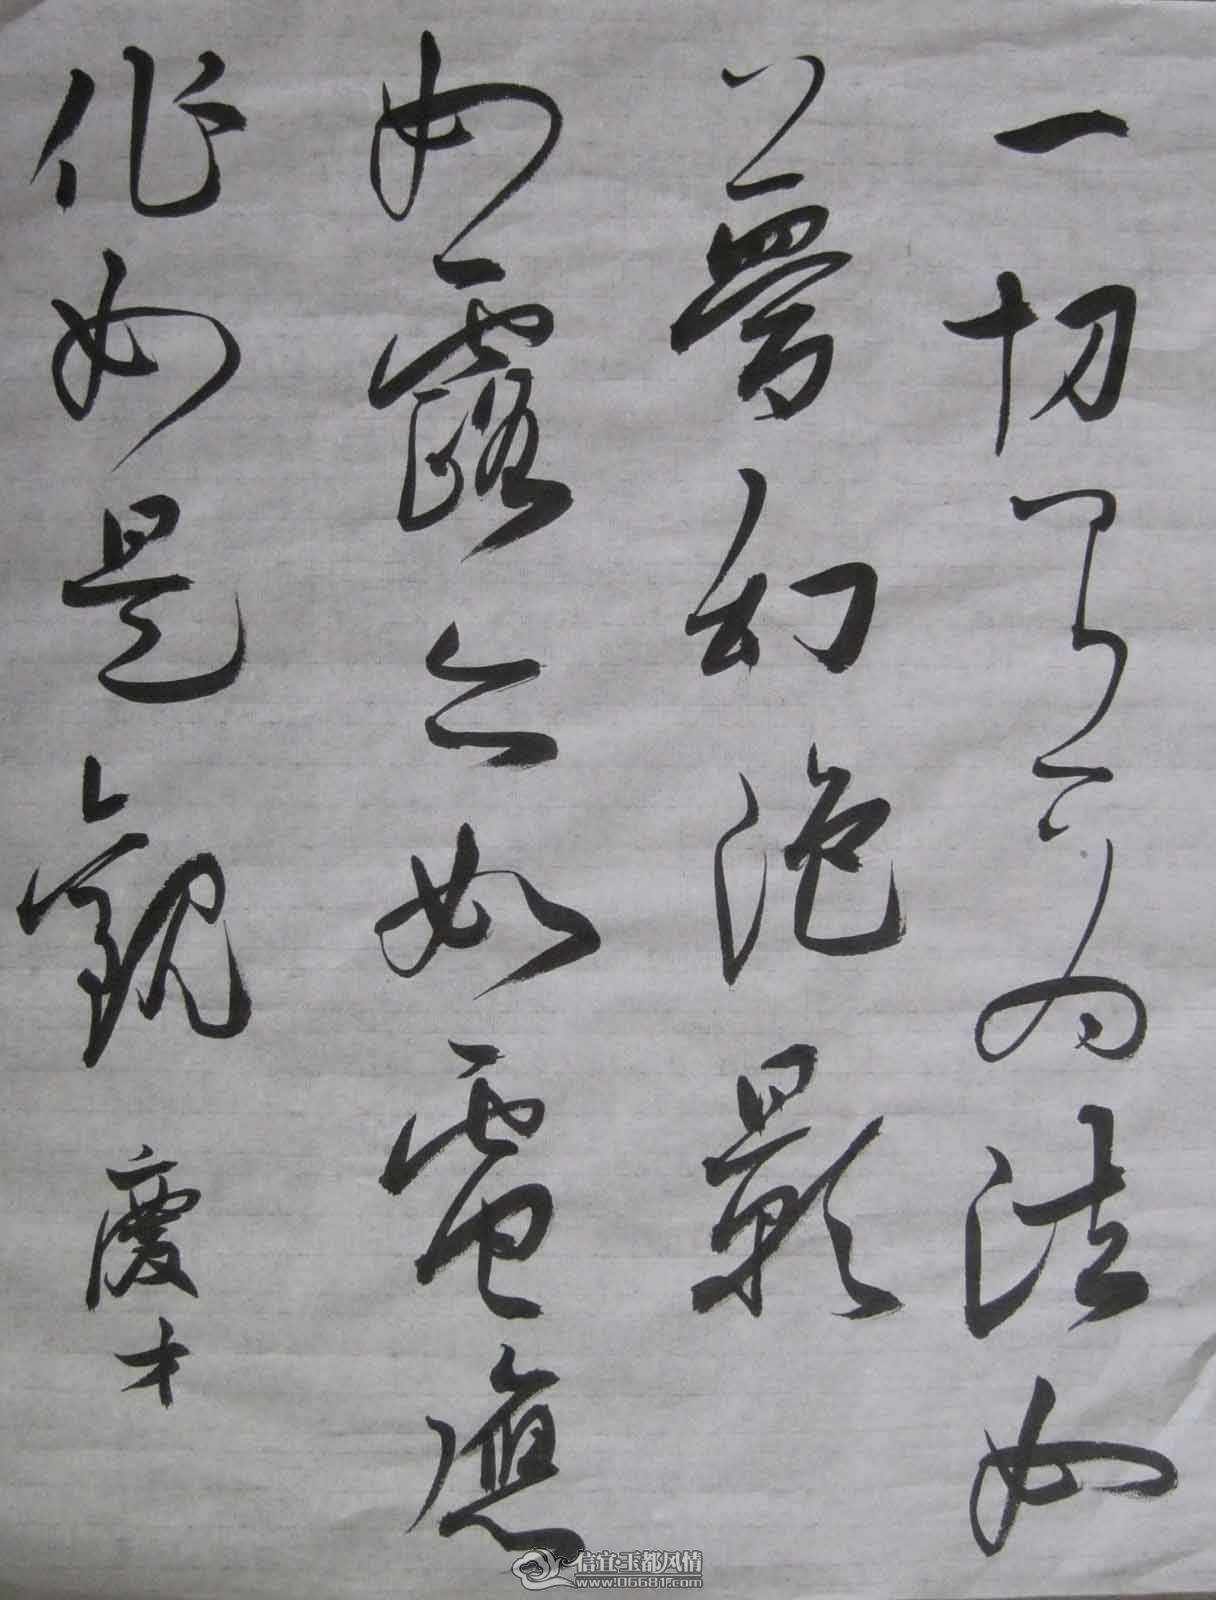 一切有为法如
夢幻泡影
如露亦如電應
作如是觀
慶才
信宜·玉都风情
www.06681.com